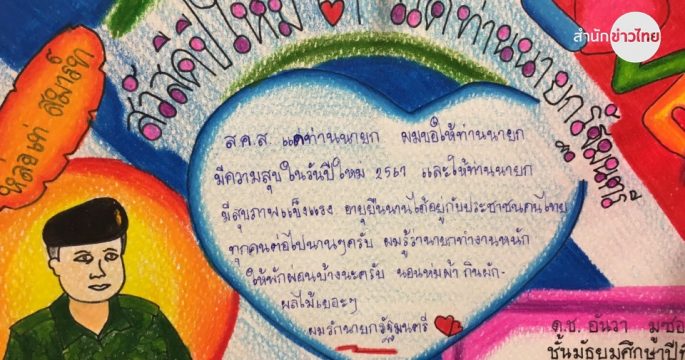 สำนักข่าวไทย
สวัสดีปีใหม่ ท่านนายกรัฐมนตรี
หล่อ เท่ สมาร์ท
ส.ค.ส. แด่ท่านนายก ผมขอให้ท่านนายก
มีความสุขในวันปีใหม่ 2561 และให้ท่านนายก
มีสุขภาพแข็งแรง อายุยืนนานได้อยู่กับประชาชนคนไทย
ทุกคนต่อไปนานๆครับ ผมรู้ว่านายกทำงานหนัก
ให้พักผ่อนบ้างนะครับ นอนห่มผ้า กินผัก-
ผลไม้เยอะๆ
ผมรักนายกรัฐมนตรี
ด.ช. อันวา มูซอ
ชั้นมัธยมศึกษาปีที่